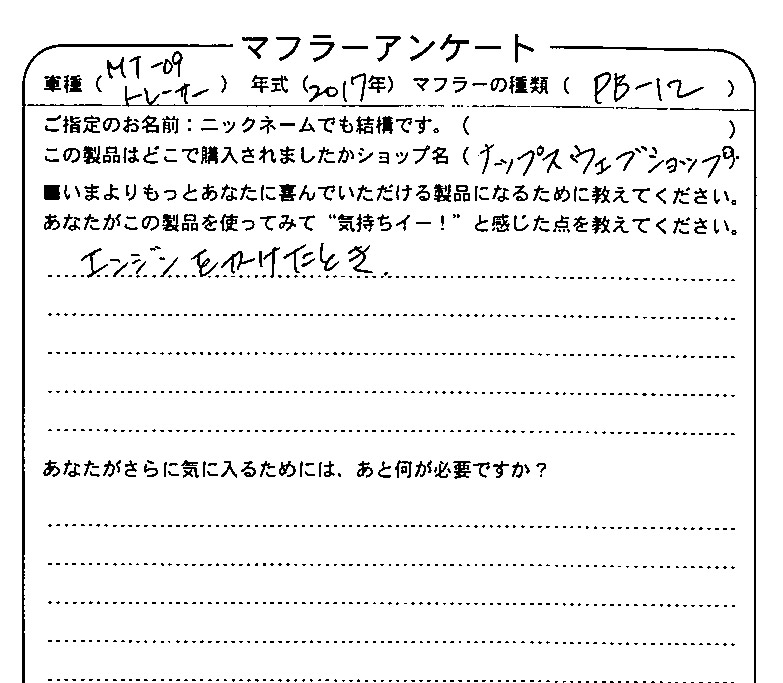 マフラーアンケート
車種（MT-09 トレーサー）　年式（2017年）　マフラーの種類（　PB-12　）
ご指定のお名前：ニックネームでも結構です。（　　　）
この製品はどこで購入されましたかショップ名（ナップスウェブショップ
■いまよりもっとあなたに喜んでいただける製品になるために教えてください。
あなたがこの製品を使ってみて“気持ちイー！”と感じた点を教えてください。
エンジンをかけたとき.
あなたがさらに気に入るためには、あと何が必要ですか？